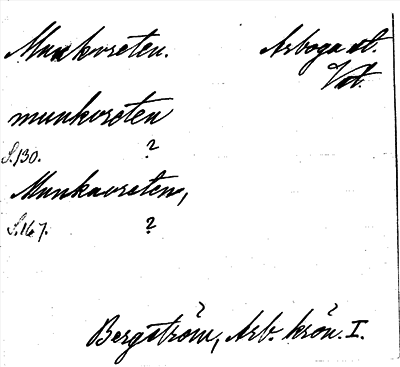 Munkvreten. Arboga st.
Vstm.
munkvreten
S. 130. ?
Munkavreten,
S. 167. ?
Bergström, Arb. krön. I.